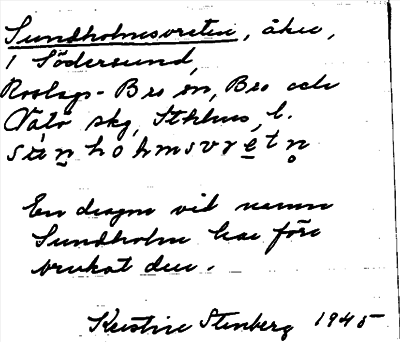 Sundholmsvreten, åker,
i Södersund,
Roslags-Bro sn, Bro och
Vätö skg, Sthlms l.
En dragon vid namn
Sundholm har före
brukat den.
Kerstin Stenberg 1945